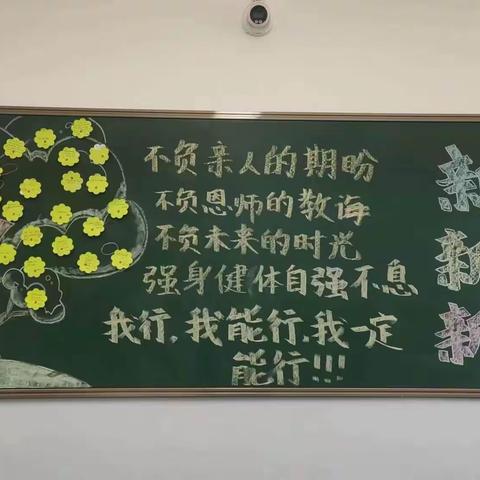 不负亲人的期盼
不负恩师的教诲
不负未来的时光
强身健体自强不息
我行,我能行,我一定
能行!!!
新
新
新